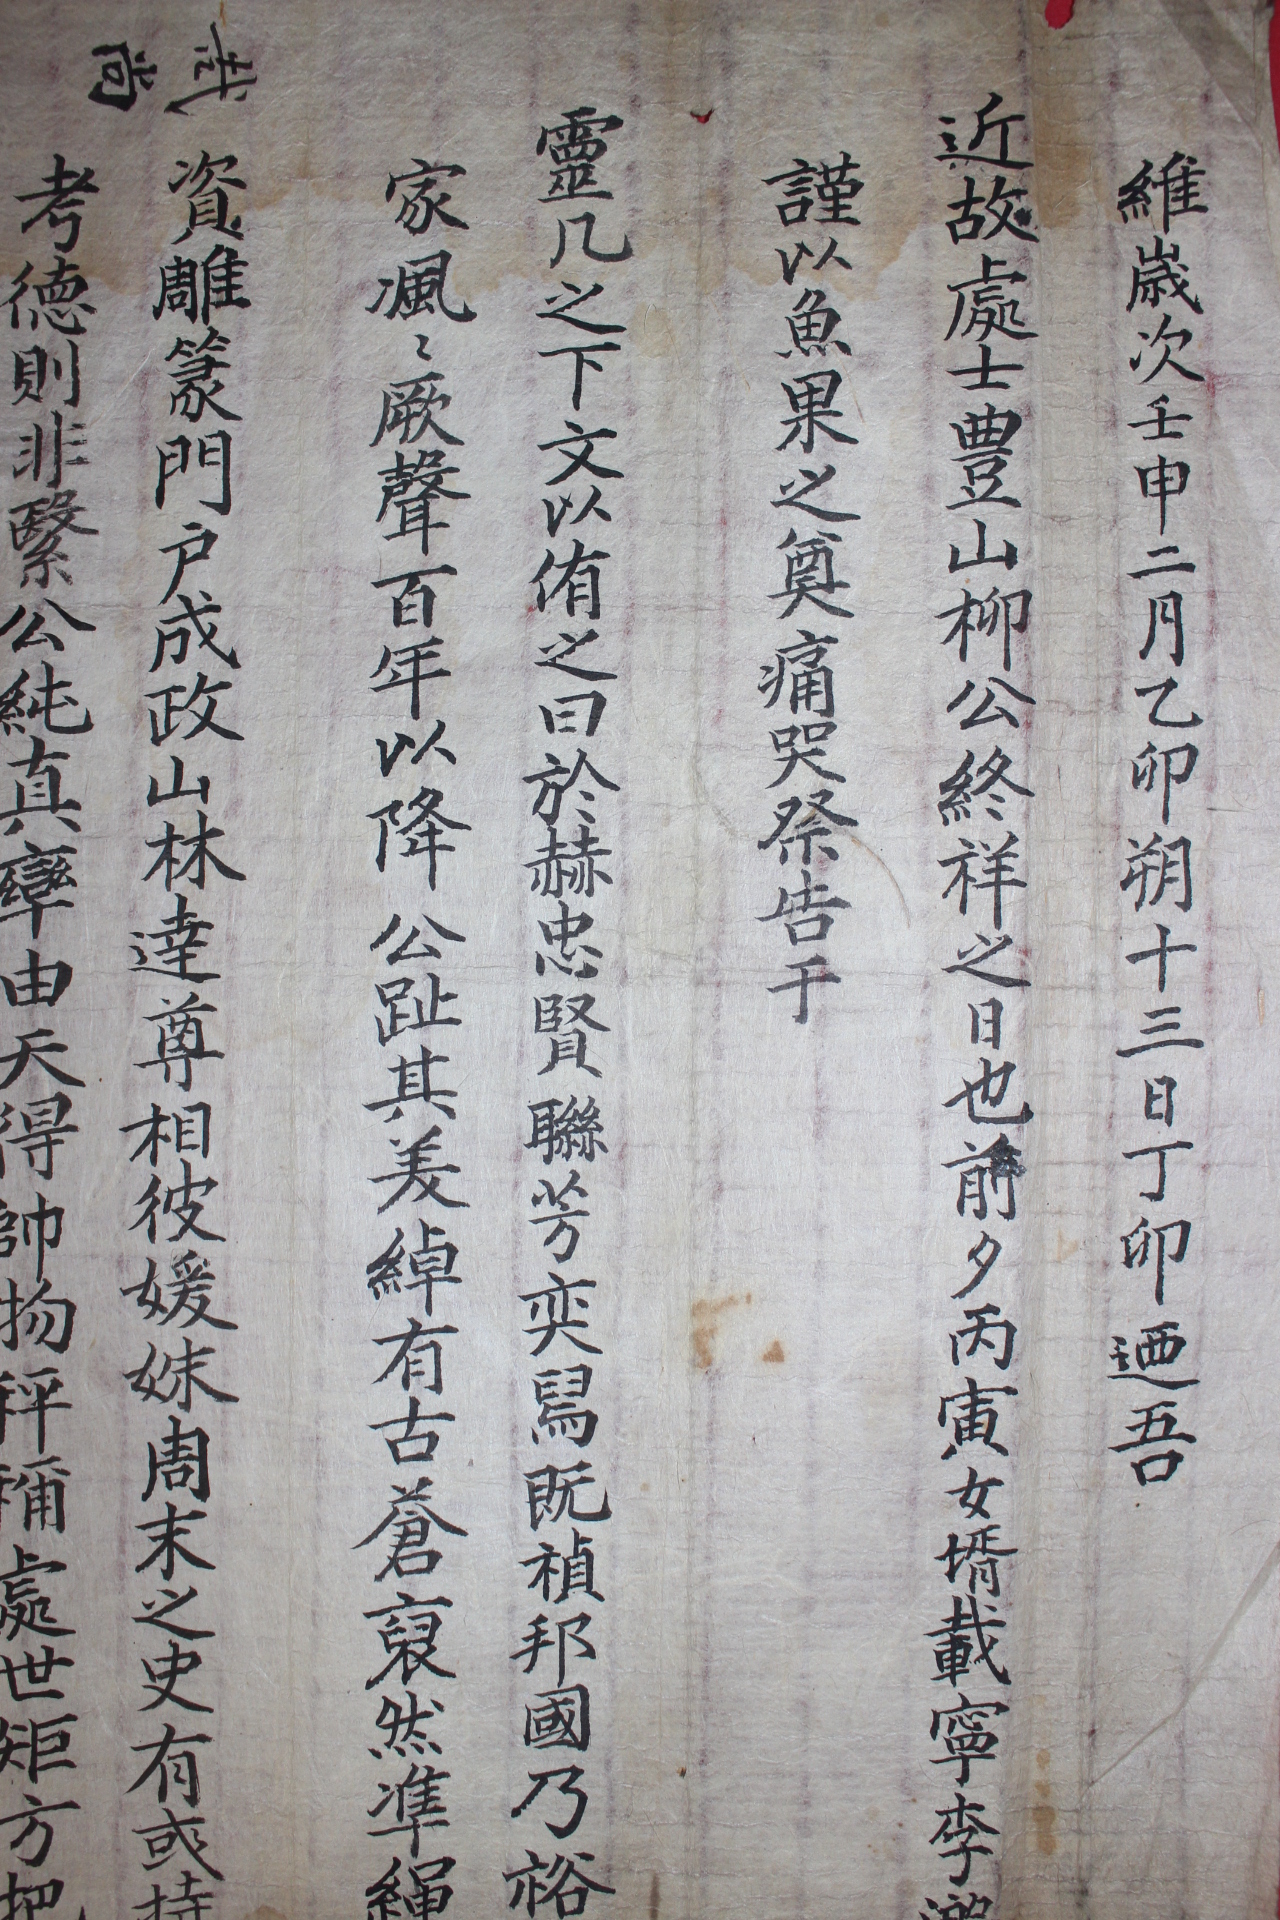 維歲次壬申二月乙卯朔十三日丁卯迺吾
近故處士豊山柳公終祥之日也前夕丙寅女壻載寧李
謹以魚果之奠痛哭祭告于
靈几之下文以侑之曰於赫忠賢聯芳奕舄既禎邦國乃裕
家風〻厥聲百年以降公趾其美綽有古蒼裒然準繩
資雕篆門戶成政山林達尊相彼媛姝周末之史有或持
考德則非繄公純真孿由天得帥物秤稱處世矩方把